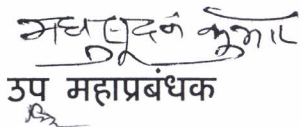 मधुसूदन कुमार
उप महाप्रबंधक